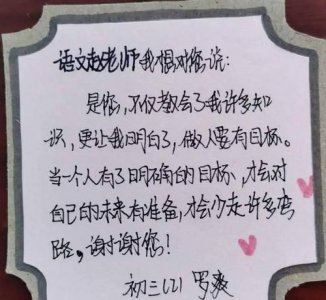 语文赵老师我想对您说:
是您,不仅教会了我许多知
识,更让我明白了,做人要有目标。
当一个人有了明确的目标,才会对
自己的未来有准备,才会少走许多弯
路,谢谢您!
初三(2) 罗爽